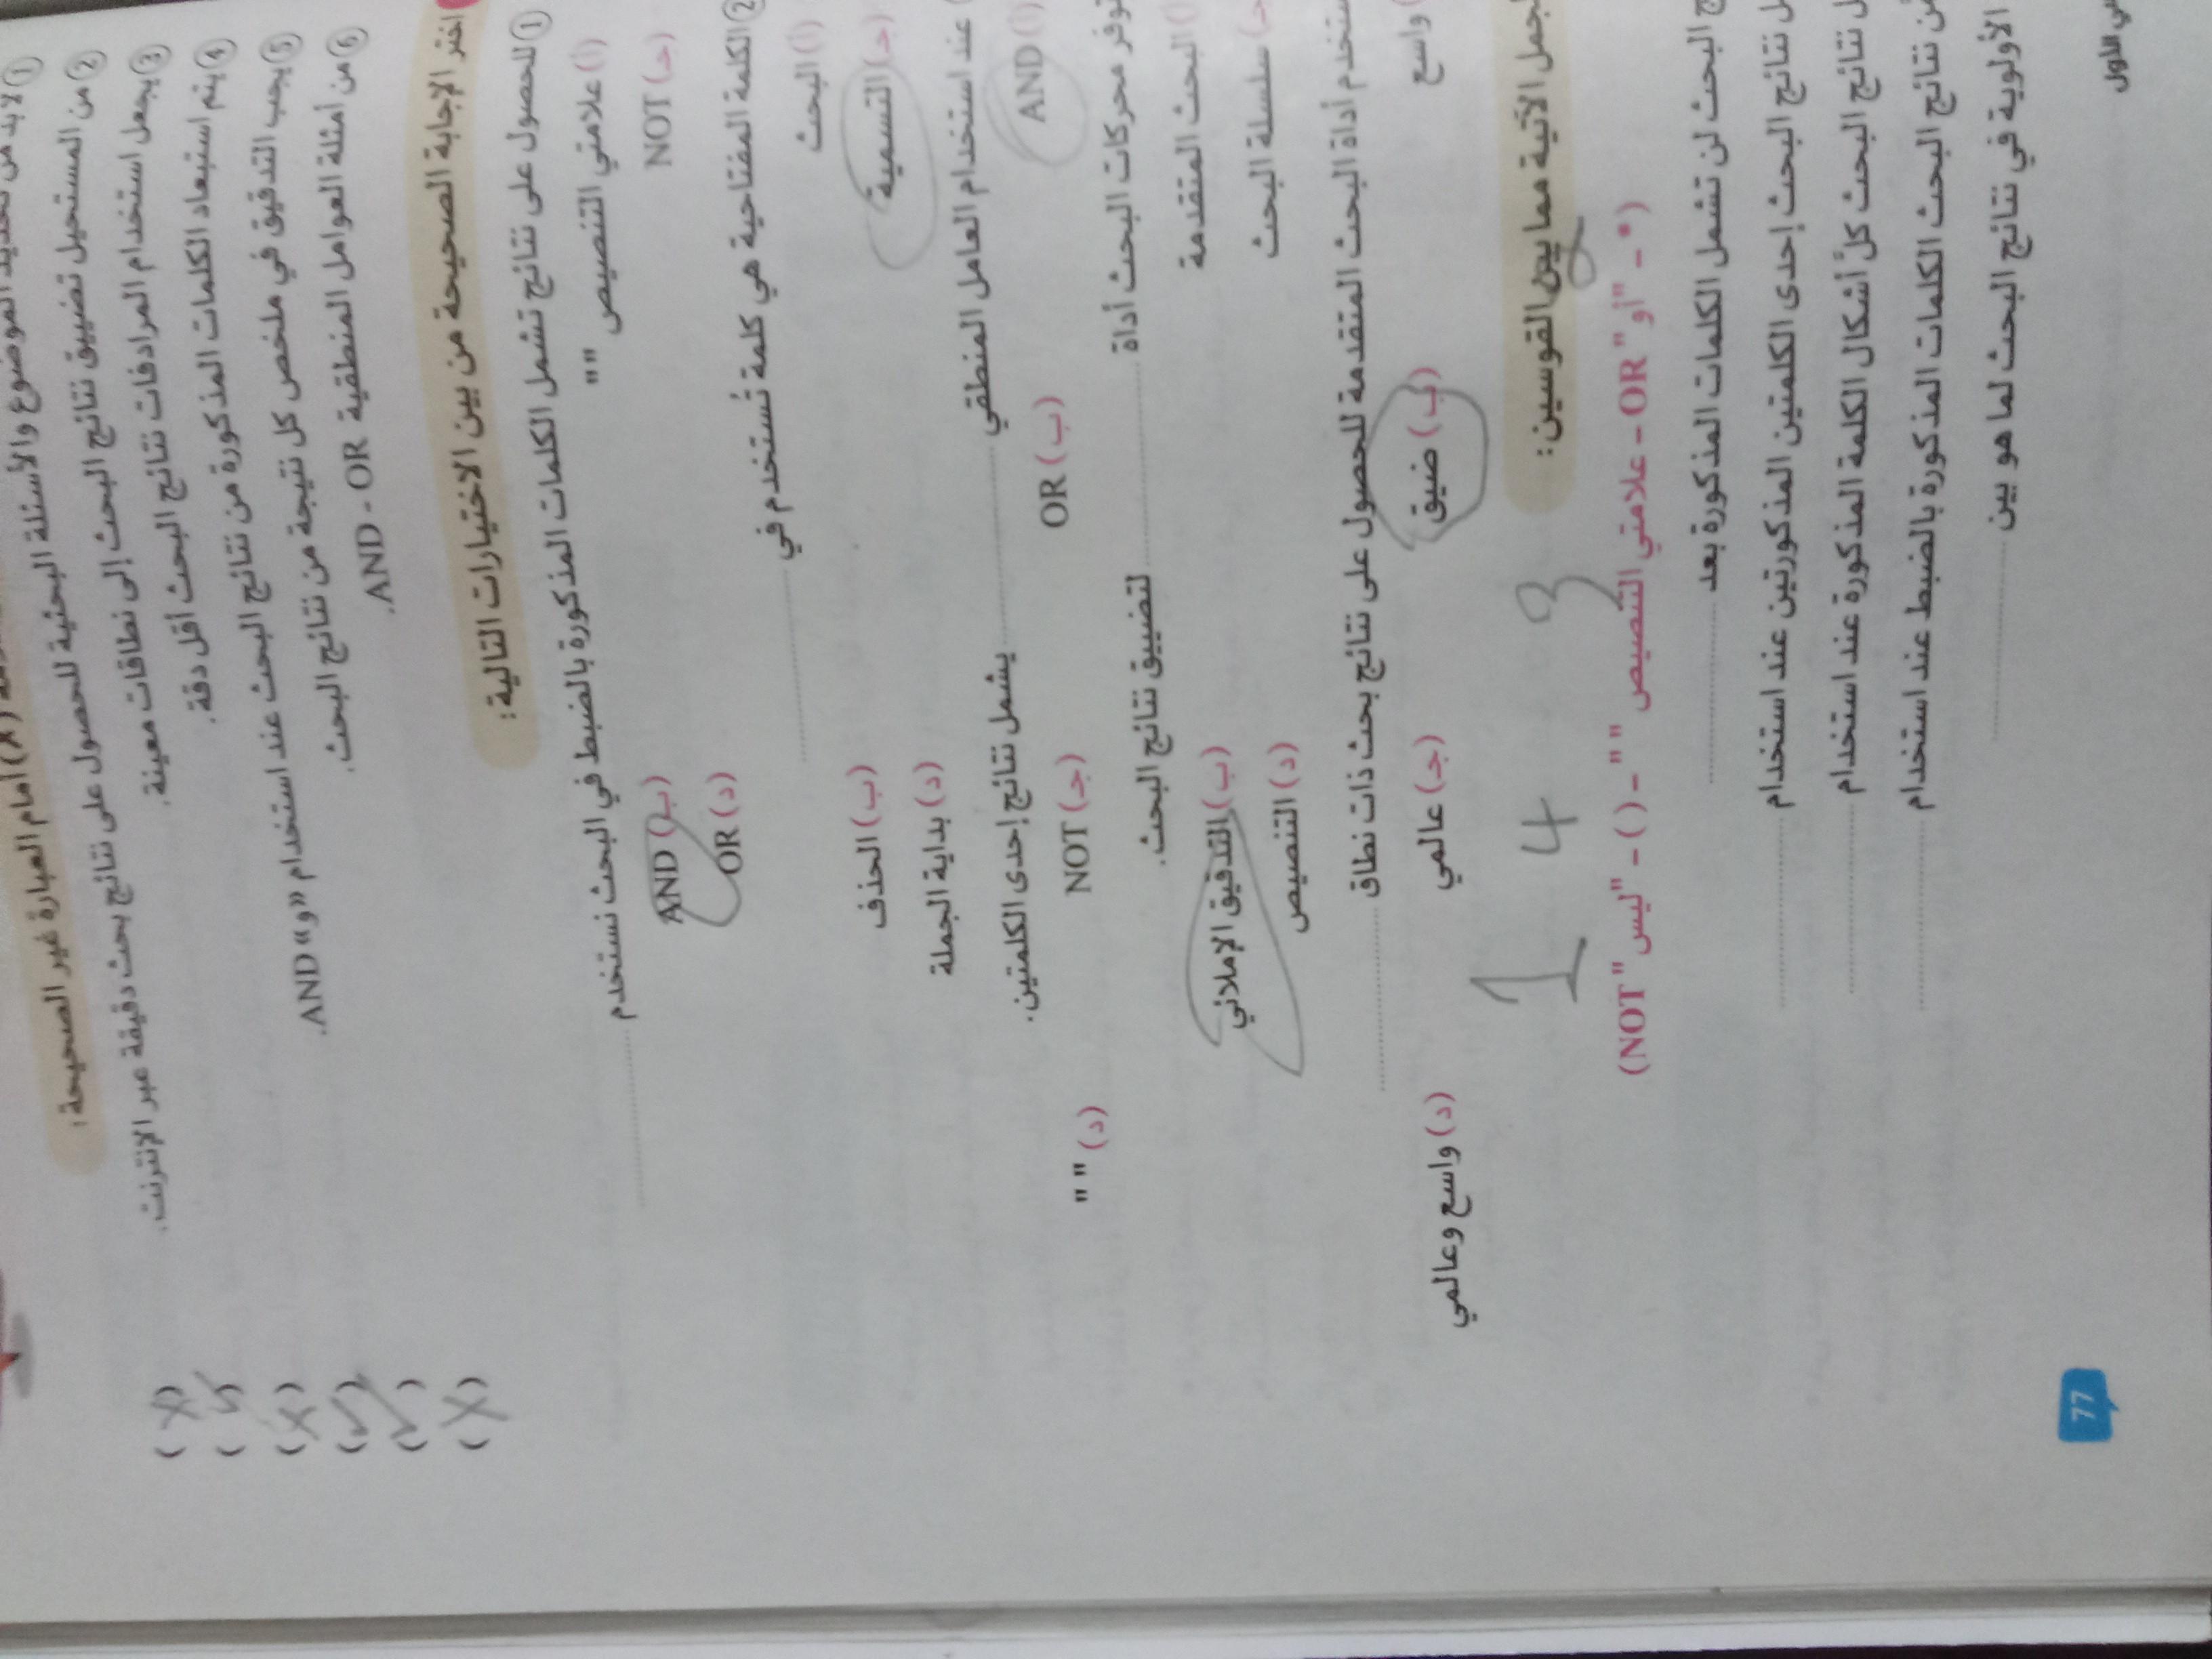 أمام العبارة غير الصحيحة:
① لابد من تحديد الموضوع والأسئلة البحثية للحصول على نتائج بحث دقيقة عبر الإنترنت. (X)
② من المستحيل تضييق نتائج البحث إلى نطاقات معينة. (✓)
③ يجعل استخدام المرادفات نتائج البحث أقل دقة. (X)
④ يتم استبعاد الكلمات المذكورة من نتائج البحث عند استخدام «و» AND. (✓)
⑤ يجب التدقيق في ملخص كل نتيجة من نتائج البحث. (✓)
⑥ من أمثلة العوامل المنطقية AND - OR. (X)
اختر الإجابة الصحيحة من بين الاختيارات التالية:
① للحصول على نتائج تشمل الكلمات المذكورة بالضبط في البحث نستخدم ..........
(أ) علامتي التنصيص " " (ب) AND
(ج) NOT (د) OR
② الكلمة المفتاحية هي كلمة تُستخدم في ..........
(أ) البحث (ب) الحذف
(ج) التسمية (د) بداية الجملة
عند استخدام العامل المنطقي .......... يشمل نتائج إحدى الكلمتين.
(أ) AND (ب) OR (ج) NOT (د) " "
توفر محركات البحث أداة .......... لتضييق نتائج البحث.
(أ) البحث المتقدمة (ب) التدقيق الإملائي
(ج) سلسلة البحث (د) التنصيص
أداة البحث المتقدمة للحصول على نتائج بحث ذات نطاق ..........
واسع (ب) ضيق (ج) عالمي (د) واسع وعالمي
الآتية مما بين القوسين:
2 3 4 1
(* - "أو" OR - علامتي التنصيص " " - () - "ليس" NOT)
البحث لن تشمل الكلمات المذكورة بعد ..........
نتائج البحث إحدى الكلمتين المذكورتين عند استخدام ..........
نتائج البحث كل أشكال الكلمة المذكورة عند استخدام ..........
نتائج البحث الكلمات المذكورة بالضبط عند استخدام ..........
الأولوية في نتائج البحث لما هو بين ..........
الأول
77